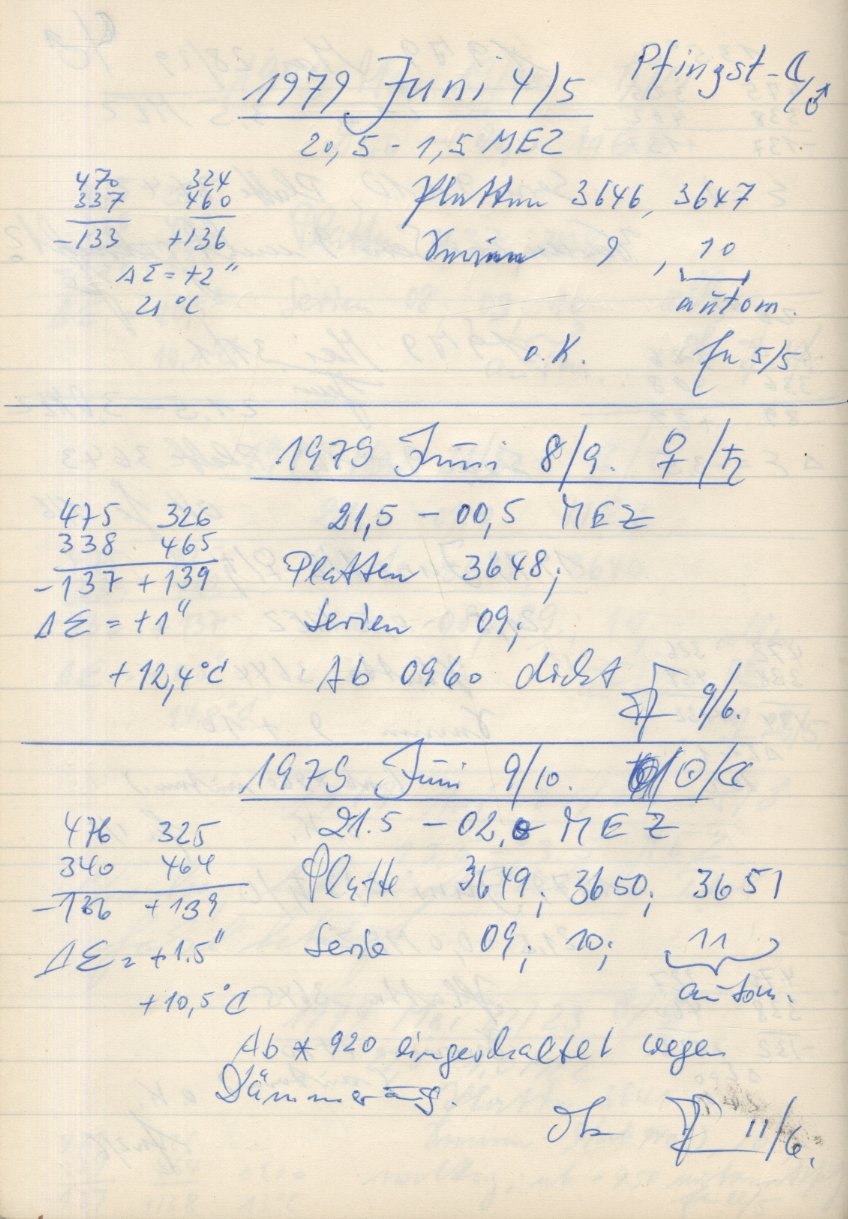 1979 Juni 4/5 Pfingst-☾/♂
20,5 - 1,5 MEZ
470 324 Platten 3646, 3647
337 460
-133 +136 Serien 9, 10
ΔΣ = +2" autom.
21 °C
o.K. 5/5
1979 Juni 8/9. ♀/♄
475 326 21,5 - 00,5 MEZ
338 465
-137 +139 Platten 3648;
ΔΣ = +1" Serien 09;
+12,4°C Ab 0960 dicht 9/6.
1979 Juni 9/10. ☉/☾
476 325 21.5 - 02, MEZ
340 464 Platte 3649; 3650; 3651
-136 +139
ΔΣ = +1.5" Serie 09; 10; 11
+10,5°C autom.
Ab * 920 eingeschaltet wegen
Dämmerung.
Ok 11/6.